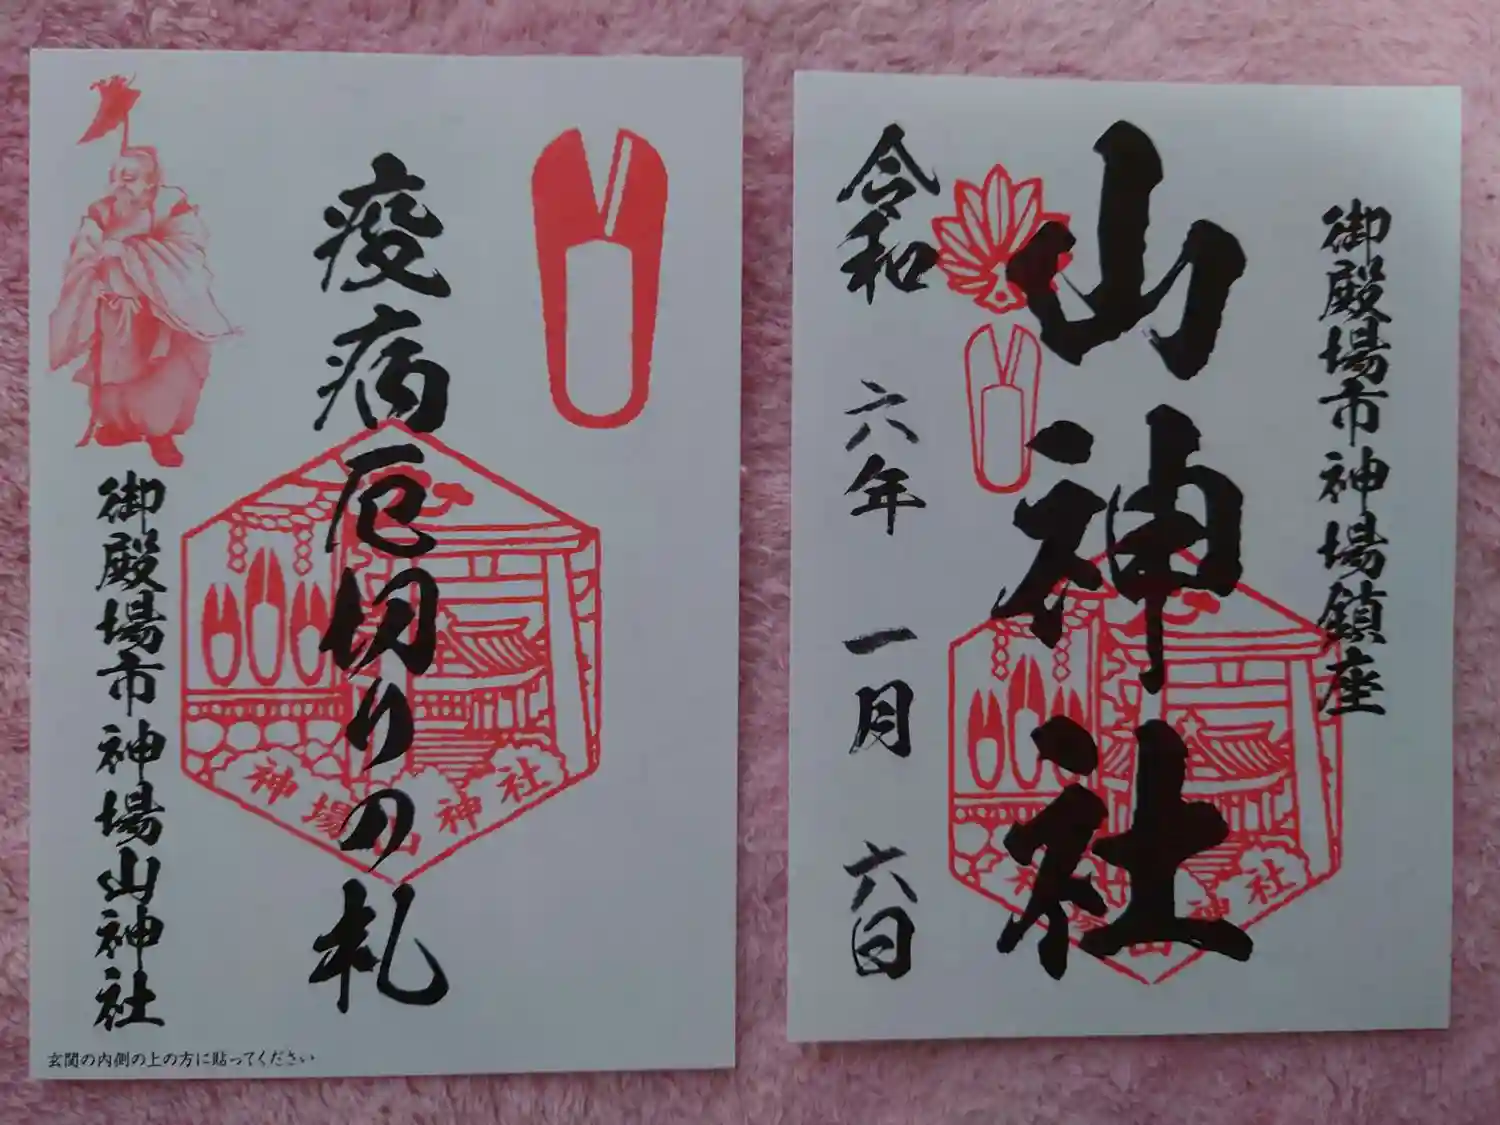 疫病厄切りの札
御殿場市神場山神社
神場山神社
玄関の内側の上の方に貼ってください
御殿場市神場鎮座
山神社
令和六年一月六日
神社